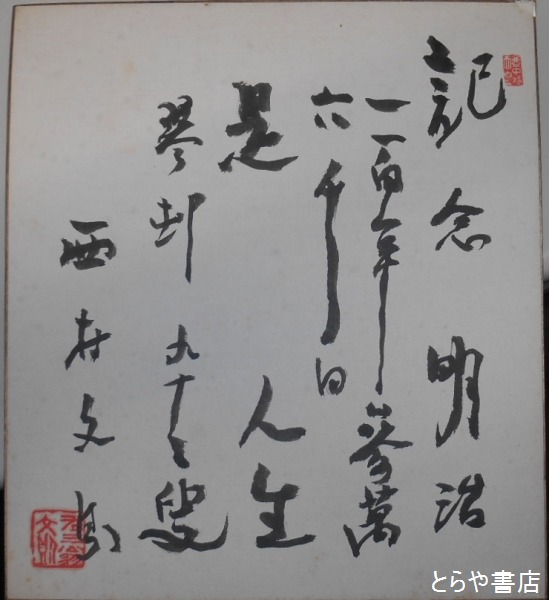 記念明治
一百年參萬
六千日
是人生
琴邨 九十 叟
西村文則
とらや書店